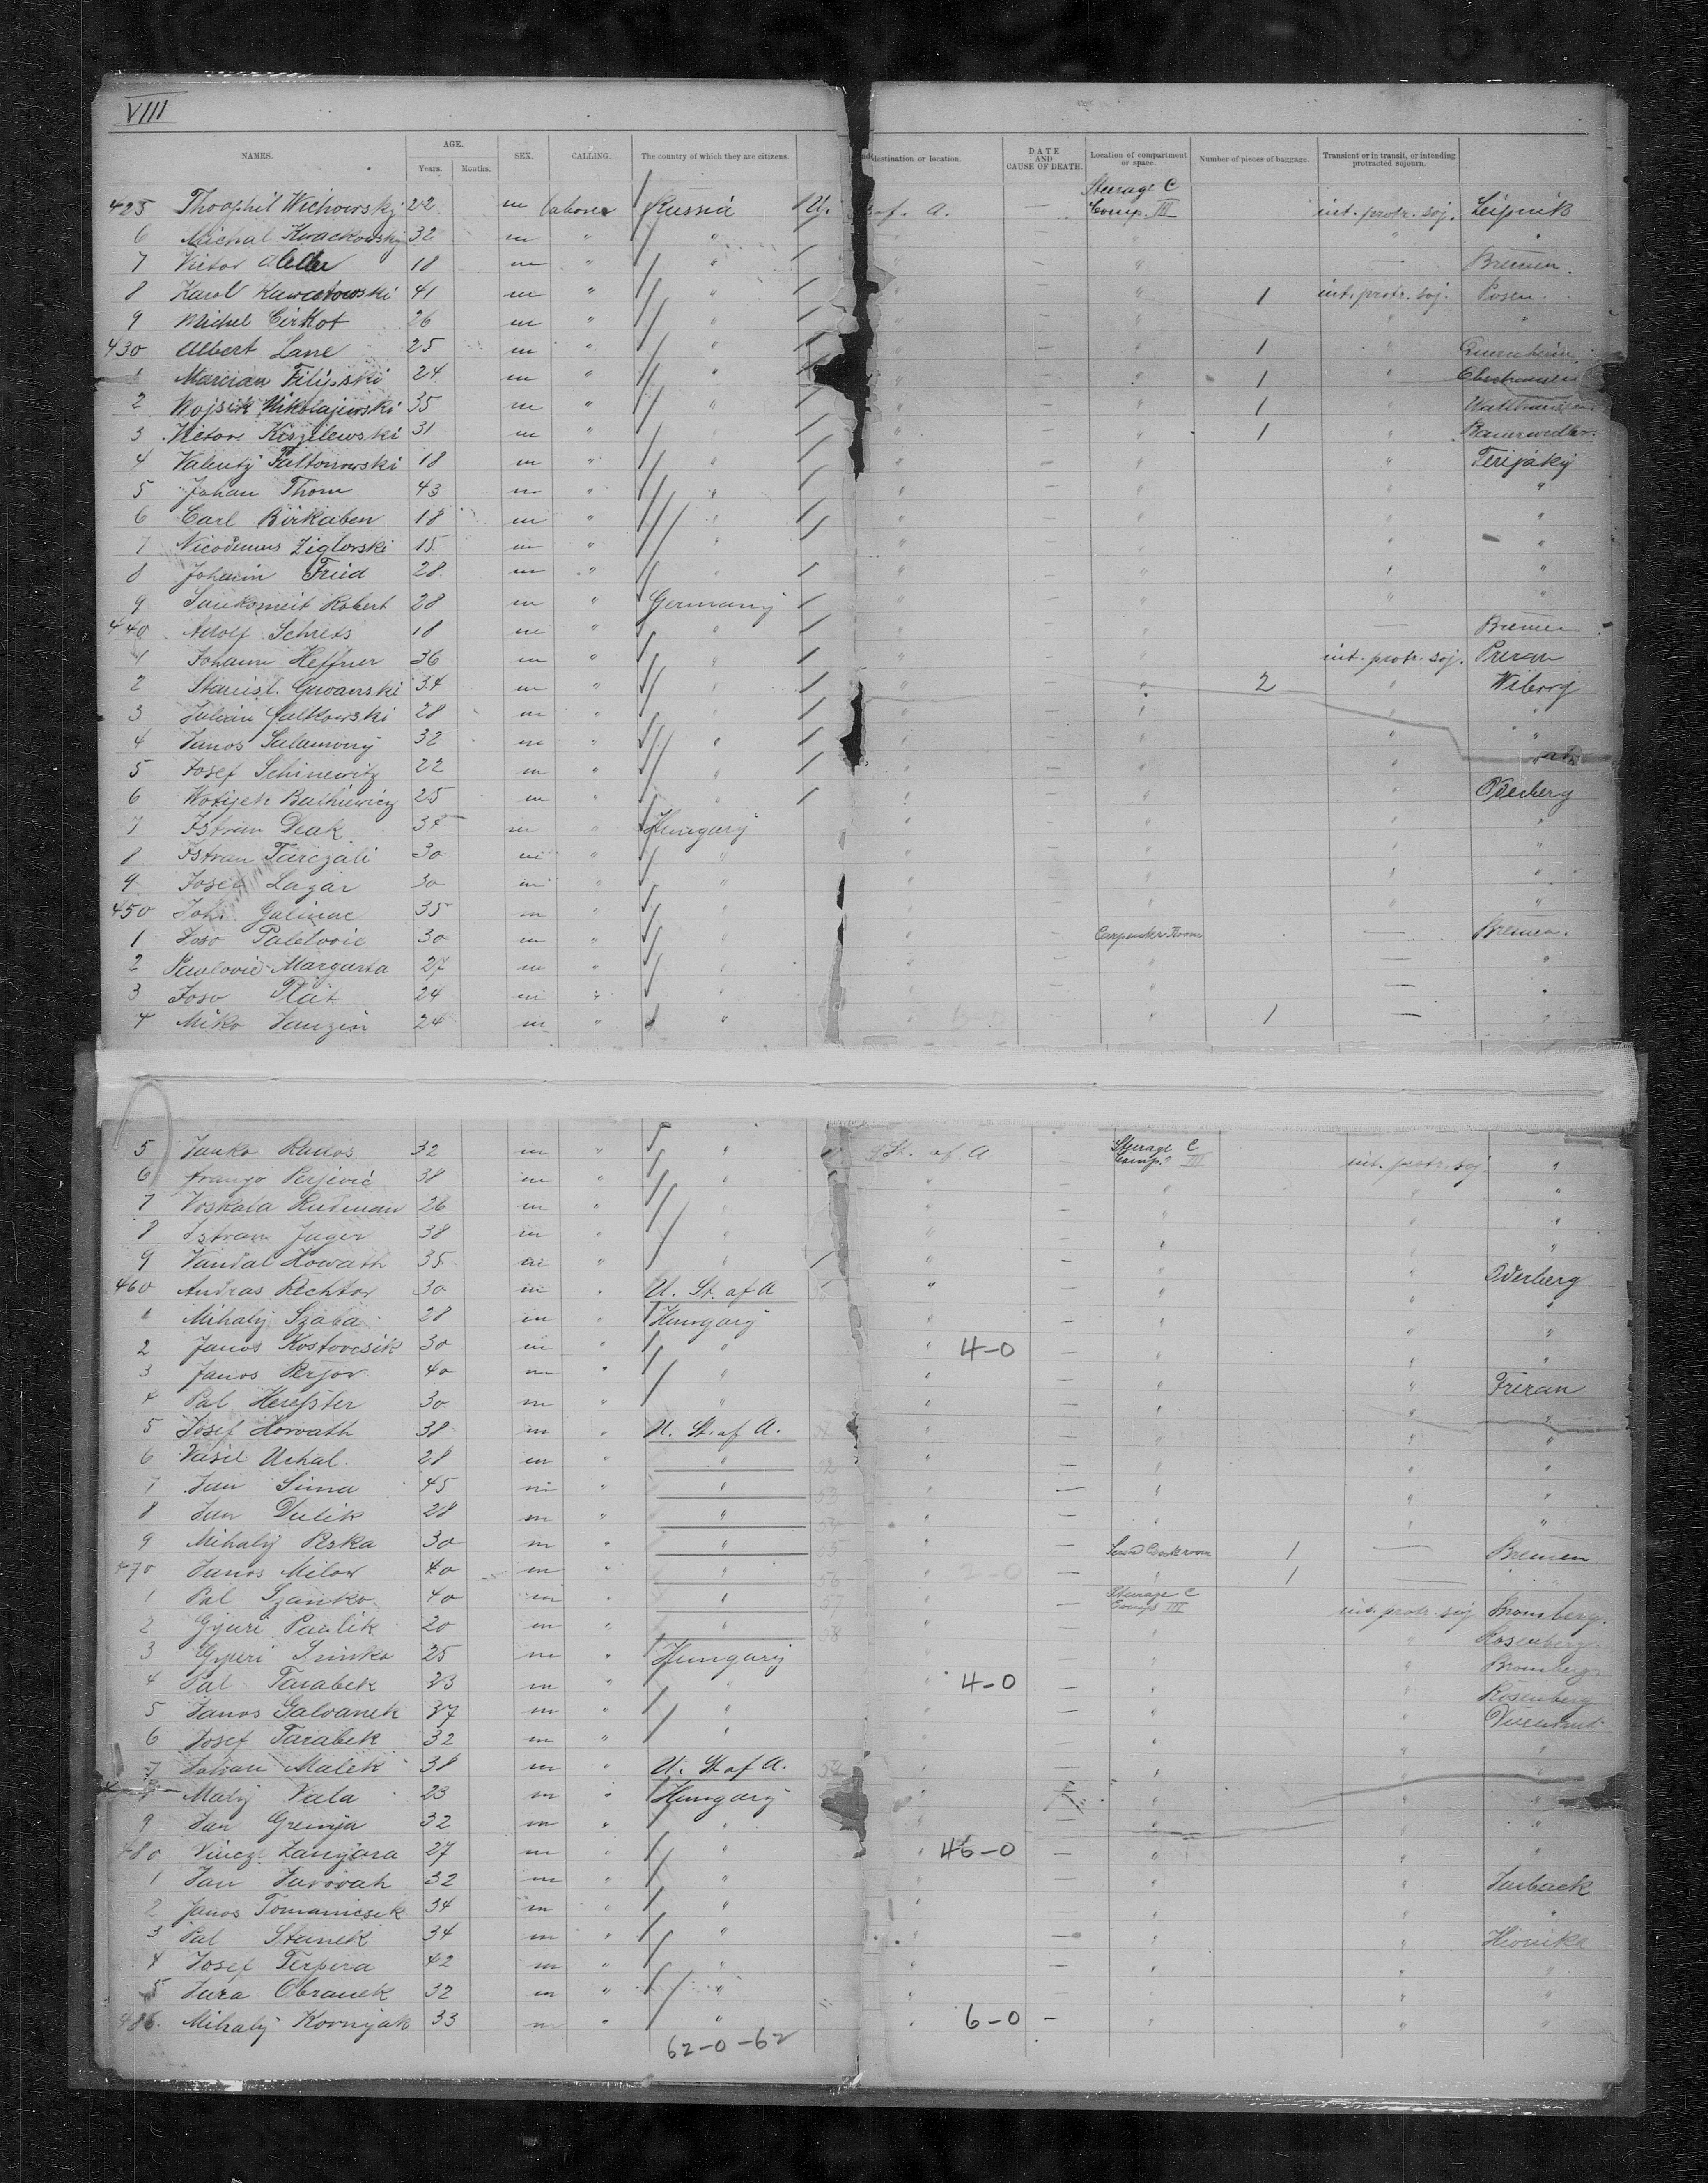 VIII
NAMES. AGE. Years. Months. SEX. CALLING. The country of which they are citizens. destination or location. DATE AND CAUSE OF DEATH. Location of compartment or space. Number of pieces of baggage. Transient or in transit, or intending protracted sojourn.
425 Theophil Wichowsky 22 m laborer Russia U. of. A. — Steerage C Comp. III int. protr. soj. Leipnik
6 Michal Kwackowsky 32 m " " " — " " "
7 Victor 18 m " " " — " — Bremen.
8 Karol 41 m " " " — " 1 int. protr. soj. Posen.
9 Michel Cirkot 26 m " " " — " " "
430 Albert Lane 25 m " " " — " 1 "
1 Marcian Filipski 24 m " " " — " 1 "
2 Wojsik Mikolajewski 35 m " " " — " 1 "
3 Victor Kiszilewski 31 m " " " — " 1 "
4 Valenty Faltonowski 18 m " " " — " " Terijaky
5 Johan Thom 43 m " " " — " " "
6 Carl Birkaben 18 m " " " — " " "
7 Nicodemus Ziglorski 15 m " " " — " " "
8 Johann Fried 28. m " " " — " " "
9 Robert 28 m " Germany " — " " "
440 Adolf Schrets 18 m " " " — " — Bremen
1 Johann Heffner 36 m " " " — " int. protr. soj. Preran
2 Stanisl. Gwanski 34 m " " " — " 2 " Wiborg
3 Julian Jalkowski 28 m " " " — " " "
4 Janos Salamony 32 m " " " — " " "
5 Josef Schinewitz 22 m " " " — " "
6 Wotijek 25 m " " " — " " Oderberg
7 Istvan Deak 37 m " Hungary " — " " "
8 Istvan Tarczali 30 m " " " — " " "
9 Josef Lazar 30 m " " " — " " "
450 Joh. Galinac 35 m " " " — " " "
1 Joso 30 m " " " — Carpenter Room — Bremen.
2 Pavlovic Margurta 27 m " " " — " — "
3 Joso Plat 24 m " " " — " — "
4 Miko Janzin 24 m " " " — " 1 — "
5 Janko Rados 32 m " " St. of A — Steerage C Comp. III int. protr. soj "
6 Franjo Perjevic 38 m " " " — " " "
7 Voskala Rudman 26 m " " " — " " "
8 Istvan Jager 38 m " " " — " "
9 Vandal Howath 35 m " " " — " " Oderberg
460 Andras Rechtor 30 m " U. St. of A " — " " "
1 Mihaly Szaba 28 m " Hungary " — " " "
2 Janos Kostovcsik 30 m " " " 4-0 — " " "
3 Janos Perjov 40 m " " " — " " Preran
4 Pal 30 m " " " — " " "
5 Josef Horvath 38 m " U. St. of A. " — " " "
6 Vasil Uchal 28 m " " " — " " "
7 Jan Sima 45 m " " " — " " "
8 Jan Dulik 28 m " " " — " " "
9 Mihaly Peska 30 m " " " — Second Cook room 1 — Bremen
470 Janos Milow 40 m " " " 2-0 — " 1 — "
1 Pal Szanko 40 m " " " — Steerage C Comp III int. protr. soj Bromberg.
2 Gyuri Paulik 20 m " " " — " " Rosenberg
3 Gyuri Sninko 25 m " Hungary " — " " Bromberg
4 Pal Tarabek 23 m " " " 4-0 — " " Rosenberg
5 Janos Galvanek 37 m " " " — " "
6 Josef Tarabek 32 m " " " — " " "
7 Johan Malek 38 m " U. St of A. " — " " "
8 Maly Vala 23 m " Hungary " — " " "
9 Jan Gremja 32 m " " " — " " "
480 Vincz. Zangora 27 m " " " 46-0 — " " "
1 Jan Juvovah 32 m " " " — " " Jurback
2 Janos Tomanicsek 34 m " " " — " " "
3 Pal Stanek 34 m " " " — " "
4 Josef Terpira 42 m " " " — " " "
5 Jura Obranek 32 m " " " — " " "
486. Mihaly Kovnyak 33 m " " " 6-0 — " " "
62-0-62